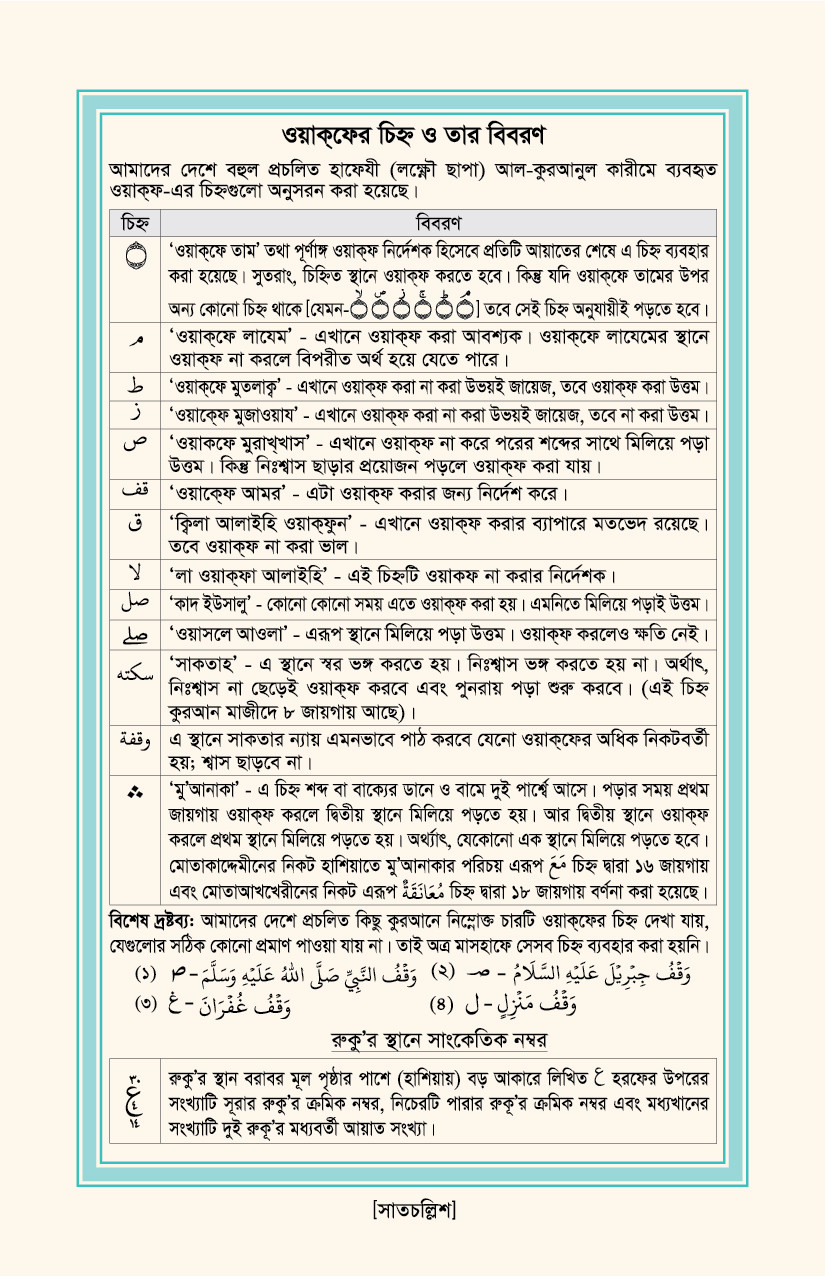 ওয়াক্‌ফের চিহ্ন ও তার বিবরণ
আমাদের দেশে বহুল প্রচলিত হাফেযী (লক্ষ্ণৌ ছাপা) আল-কুরআনুল কারীমে ব্যবহৃত
ওয়াক্‌ফ-এর চিহ্নগুলো অনুসরন করা হয়েছে।
চিহ্ন বিবরণ
۝ ‘ওয়াক্‌ফে তাম’ তথা পূর্ণাঙ্গ ওয়াক্‌ফ নির্দেশক হিসেবে প্রতিটি আয়াতের শেষে এ চিহ্ন ব্যবহার
করা হয়েছে। সুতরাং, চিহ্নিত স্থানে ওয়াক্‌ফ করতে হবে। কিন্তু যদি ওয়াক্‌ফে তামের উপর
অন্য কোনো চিহ্ন থাকে [যেমন-] তবে সেই চিহ্ন অনুযায়ীই পড়তে হবে।
م ‘ওয়াক্‌ফে লাযেম’ - এখানে ওয়াক্‌ফ করা আবশ্যক। ওয়াক্‌ফে লাযেমের স্থানে
ওয়াক্‌ফ না করলে বিপরীত অর্থ হয়ে যেতে পারে।
ط ‘ওয়াক্‌ফে মুতলাক্ব’ - এখানে ওয়াক্‌ফ করা না করা উভয়ই জায়েজ, তবে ওয়াক্‌ফ করা উত্তম।
ز ‘ওয়াক্‌ফে মুজাওয়ায’ - এখানে ওয়াক্‌ফ করা না করা উভয়ই জায়েজ, তবে না করা উত্তম।
ص ‘ওয়াকফে মুরাখ্‌খাস’ - এখানে ওয়াক্‌ফ না করে পরের শব্দের সাথে মিলিয়ে পড়া
উত্তম। কিন্তু নিঃশ্বাস ছাড়ার প্রয়োজন পড়লে ওয়াক্‌ফ করা যায়।
قف ‘ওয়াক্‌ফে আমর’ - এটা ওয়াক্‌ফ করার জন্য নির্দেশ করে।
ق ‘ক্বিলা আলাইহি ওয়াক্‌ফুন’ - এখানে ওয়াক্‌ফ করার ব্যাপারে মতভেদ রয়েছে।
তবে ওয়াক্‌ফ না করা ভাল।
لا ‘লা ওয়াক্‌ফা আলাইহি’ - এই চিহ্নটি ওয়াকফ না করার নির্দেশক।
صل ‘কাদ ইউসালু’ - কোনো কোনো সময় এতে ওয়াক্‌ফ করা হয়। এমনিতে মিলিয়ে পড়াই উত্তম।
صلے ‘ওয়াসলে আওলা’ - এরূপ স্থানে মিলিয়ে পড়া উত্তম। ওয়াক্‌ফ করলেও ক্ষতি নেই।
سكته ‘সাকতাহ’ - এ স্থানে স্বর ভঙ্গ করতে হয়। নিঃশ্বাস ভঙ্গ করতে হয় না। অর্থাৎ,
নিঃশ্বাস না ছেড়েই ওয়াক্‌ফ করবে এবং পুনরায় পড়া শুরু করবে। (এই চিহ্ন
কুরআন মাজীদে ৮ জায়গায় আছে)।
وقفة এ স্থানে সাকতার ন্যায় এমনভাবে পাঠ করবে যেনো ওয়াক্‌ফের অধিক নিকটবর্তী
হয়; শ্বাস ছাড়বে না।
∴ ‘মু'আনাকা’ - এ চিহ্ন শব্দ বা বাক্যের ডানে ও বামে দুই পার্শ্বে আসে। পড়ার সময় প্রথম
জায়গায় ওয়াক্‌ফ করলে দ্বিতীয় স্থানে মিলিয়ে পড়তে হয়। আর দ্বিতীয় স্থানে ওয়াক্‌ফ
করলে প্রথম স্থানে মিলিয়ে পড়তে হয়। অর্থ্যাৎ, যেকোনো এক স্থানে মিলিয়ে পড়তে হবে।
মোতাকাদ্দেমীনের নিকট হাশিয়াতে মু'আনাকার পরিচয় এরূপ مَعَ চিহ্ন দ্বারা ১৬ জায়গায়
এবং মোতাআখখেরীনের নিকট এরূপ مُعَانَقَةٌ চিহ্ন দ্বারা ১৮ জায়গায় বর্ণনা করা হয়েছে।
বিশেষ দ্রষ্টব্য: আমাদের দেশে প্রচলিত কিছু কুরআনে নিম্নোক্ত চারটি ওয়াক্‌ফের চিহ্ন দেখা যায়,
যেগুলোর সঠিক কোনো প্রমাণ পাওয়া যায় না। তাই অত্র মাসহাফে সেসব চিহ্ন ব্যবহার করা হয়নি।
(১) وَقْفُ النَّبِيِّ صَلَّى اللهُ عَلَيْهِ وَسَلَّمَ - ص (২) وَقْفُ جِبْرِيْلَ عَلَيْهِ السَّلَامُ - صـ
(৩) وَقْفُ غُفْرَانَ - غ (৪) وَقْفُ مَنْزِلٍ - ل
রুকু'র স্থানে সাংকেতিক নম্বর
٣٠ ع ٤ ١٤ রুকু'র স্থান বরাবর মূল পৃষ্ঠার পাশে (হাশিয়ায়) বড় আকারে লিখিত ع হরফের উপরের
সংখ্যাটি সূরার রুকু'র ক্রমিক নম্বর, নিচেরটি পারার রুকূ'র ক্রমিক নম্বর এবং মধ্যখানের
সংখ্যাটি দুই রুকূ'র মধ্যবর্তী আয়াত সংখ্যা।
[সাতচল্লিশ]